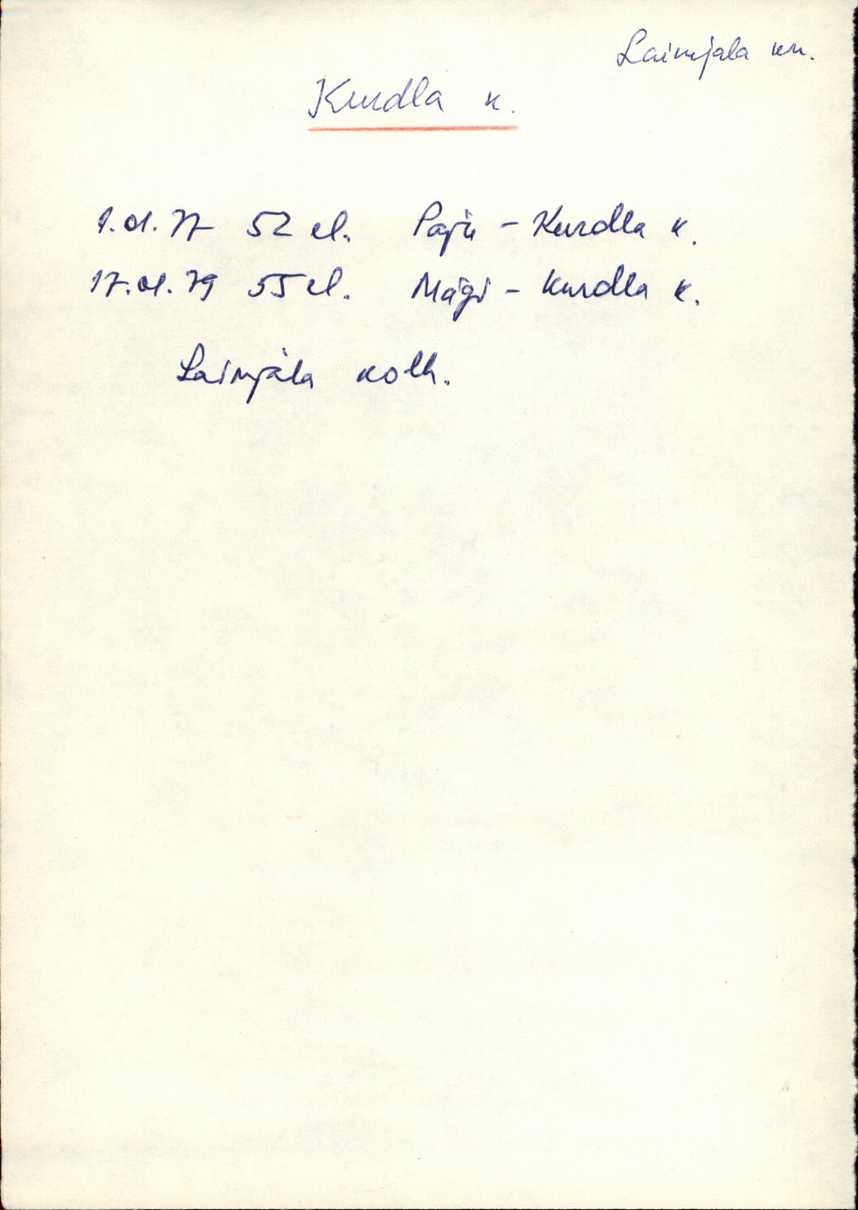 Laimjala kn.
Kurdla k.
1.01.77 52 el. Paju - Kurdla k.
17.01.79 55 el. Mägi - Kurdla k.
Laimjala kolh.